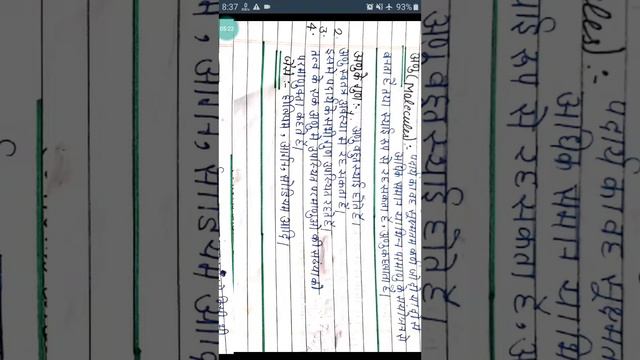 8:37
93%
05:22
अणु (Molecules) :- पदार्थ का वह सूक्ष्मतम कण जो दो या दो से
अधिक समान या भिन्न परमाणु के संयोजन से
बनता है तथा स्थाई रूप से रह सकता है, अणु कहलाता है।
अणु के गुण :- 1. अणु बहुत स्थाई होते हैं।
2. अणु स्वतंत्र अवस्था में रह सकता है।
3. इसमें पदार्थ के सभी गुण उपस्थित रहते हैं।
4. तत्व के एक अणु में उपस्थित परमाणुओं की संख्या को
परमाणुकता कहते हैं।
जैसे :- हीलियम, आर्गन, सोडियम आदि।
cules) :- पदार्थ का वह सूक्ष्मतम
अधिक समान या भिन्
थाई रूप से रह सकता है, अ
अणु बहुत स्थाई होते हैं।
, आर्गन, सोडियम आदि